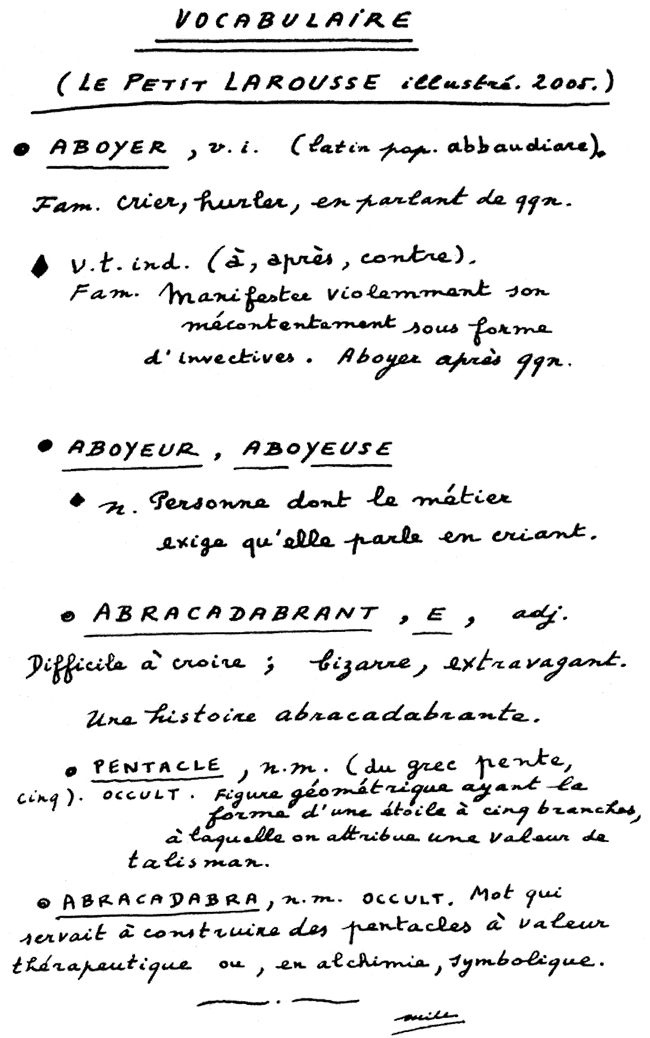 VOCABULAIRE
(LE PETIT LAROUSSE illustré. 2005.)
• ABOYER, v.i. (latin pop. abbaudiare).
Fam. crier, hurler, en parlant de qqn.
♦ v.t. ind. (à, après, contre).
Fam. Manifester violemment son
mécontentement sous forme
d'invectives. Aboyer après qqn.
• ABOYEUR, ABOYEUSE
♦ n. Personne dont le métier
exige qu'elle parle en criant.
• ABRACADABRANT, E, adj.
Difficile à croire ; bizarre, extravagant.
Une histoire abracadabrante.
• PENTACLE, n.m. (du grec pente,
cinq). OCCULT. Figure géométrique ayant la
forme d'une étoile à cinq branches,
à laquelle on attribue une valeur de
talisman.
• ABRACADABRA, n.m. OCCULT. Mot qui
servait à construire des pentacles à valeur
thérapeutique ou, en alchimie, symbolique.